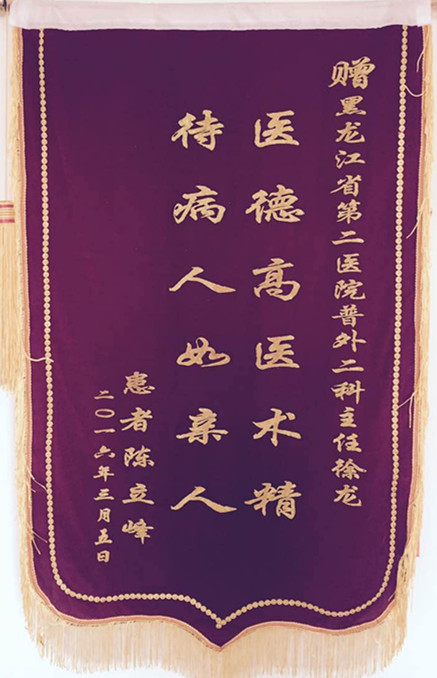 赠黑龙江省第二医院普外二科主任徐龙
医德高医术精
待病人如亲人
患者陈立峰
二〇一六年三月五日